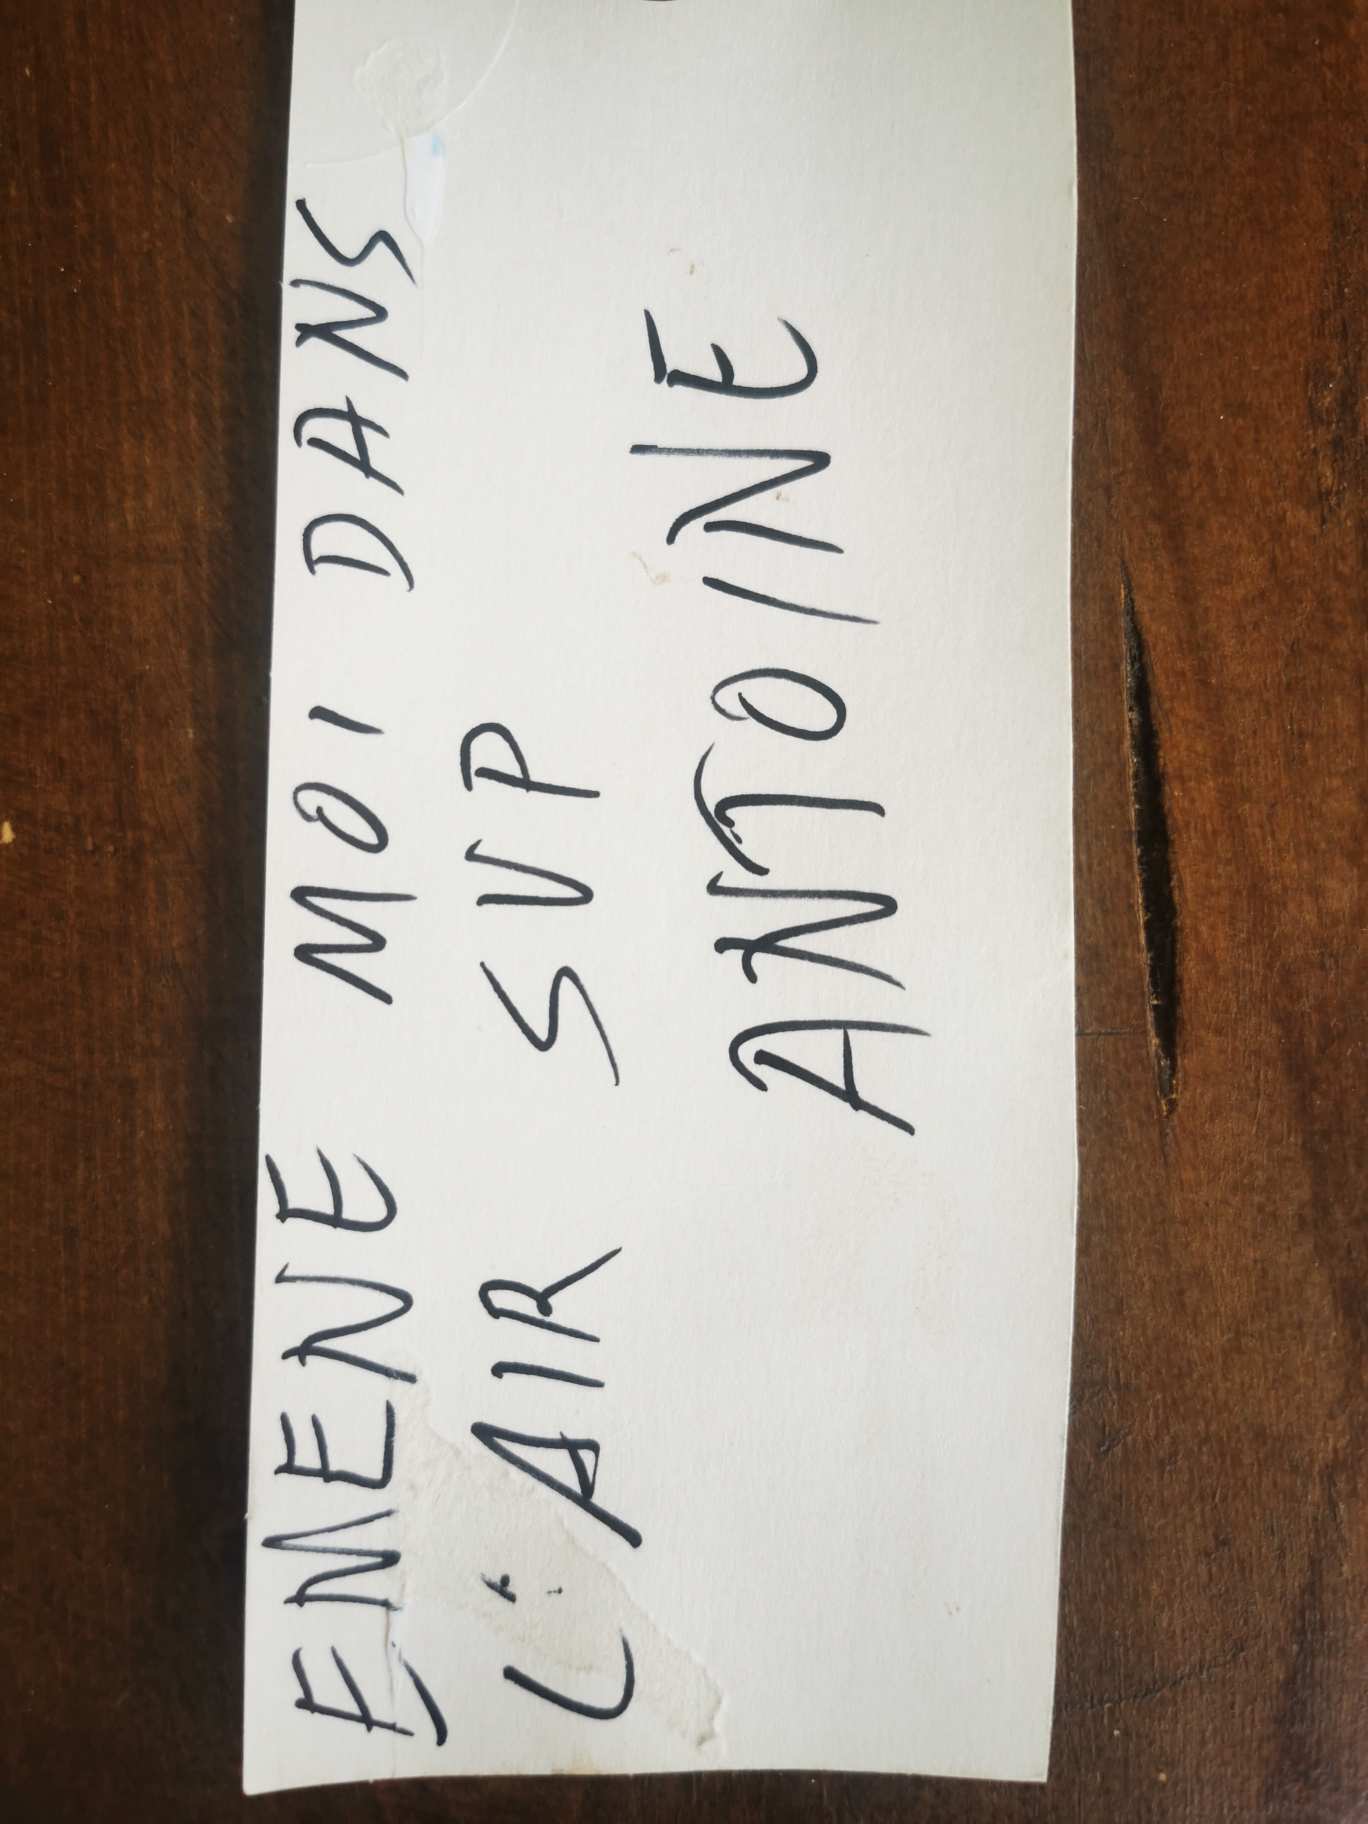 EMENE MOI DANS
L'AIR SVP
ANTOINE